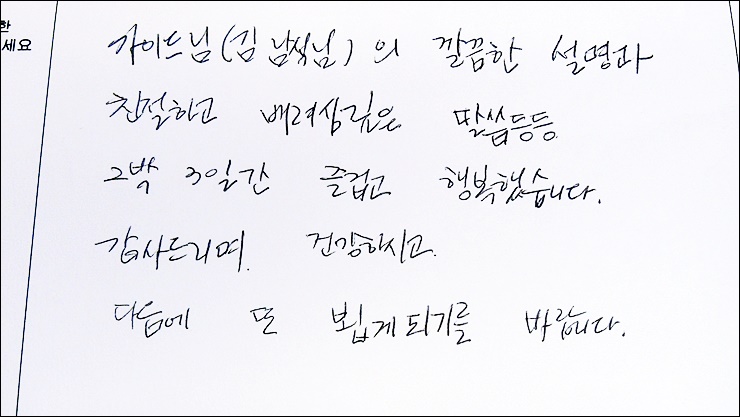 한
세요
가이드님(김 남식님)의 깔끔한 설명과
친절하고 배려심깊은 말씀등등
2박 3일간 즐겁고 행복했습니다.
감사드리며 건강하시고
다음에 또 뵙게되기를 바랍니다.